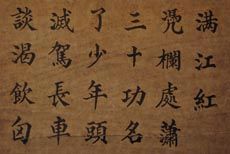 满江紅
凭欄處蕭
三十功名
了少年頭
滅駕長車
談渴飲匈